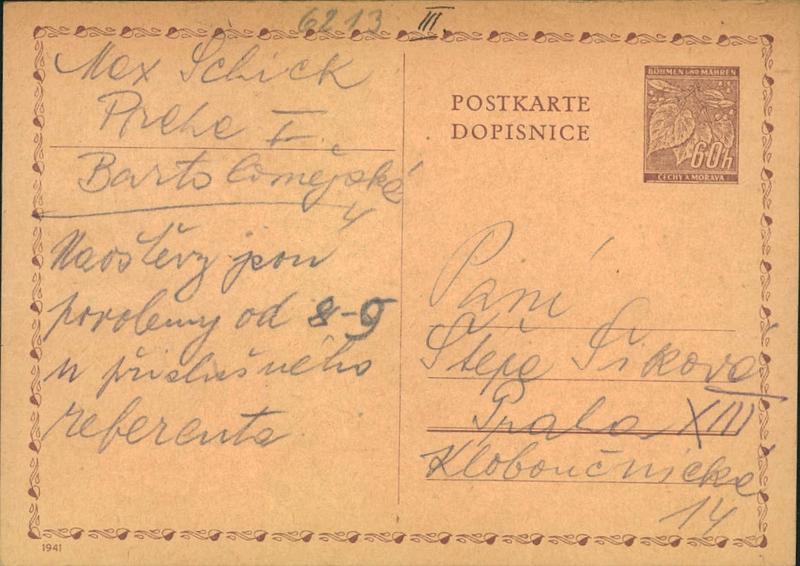 6213 III.
Max Schick
Praha I.
Bartolomějská
4
Navštěvy jsou
povoleny od 8-9
u příslušného
referenta
POSTKARTE
DOPISNICE
BÖHMEN UND MÄHREN
60h
ČECHY A MORAVA
Paní
Štěpa Šiková
Praha XIII
Kloboučnická
14
1941